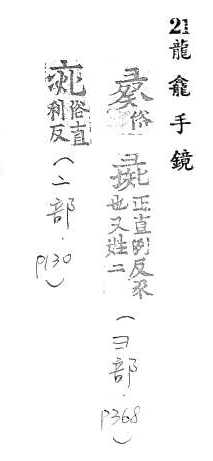 21龍龕手鏡
俗 彘正直例反豕也又姓二(彐部.P368)
俗直利反(亠部.P130)